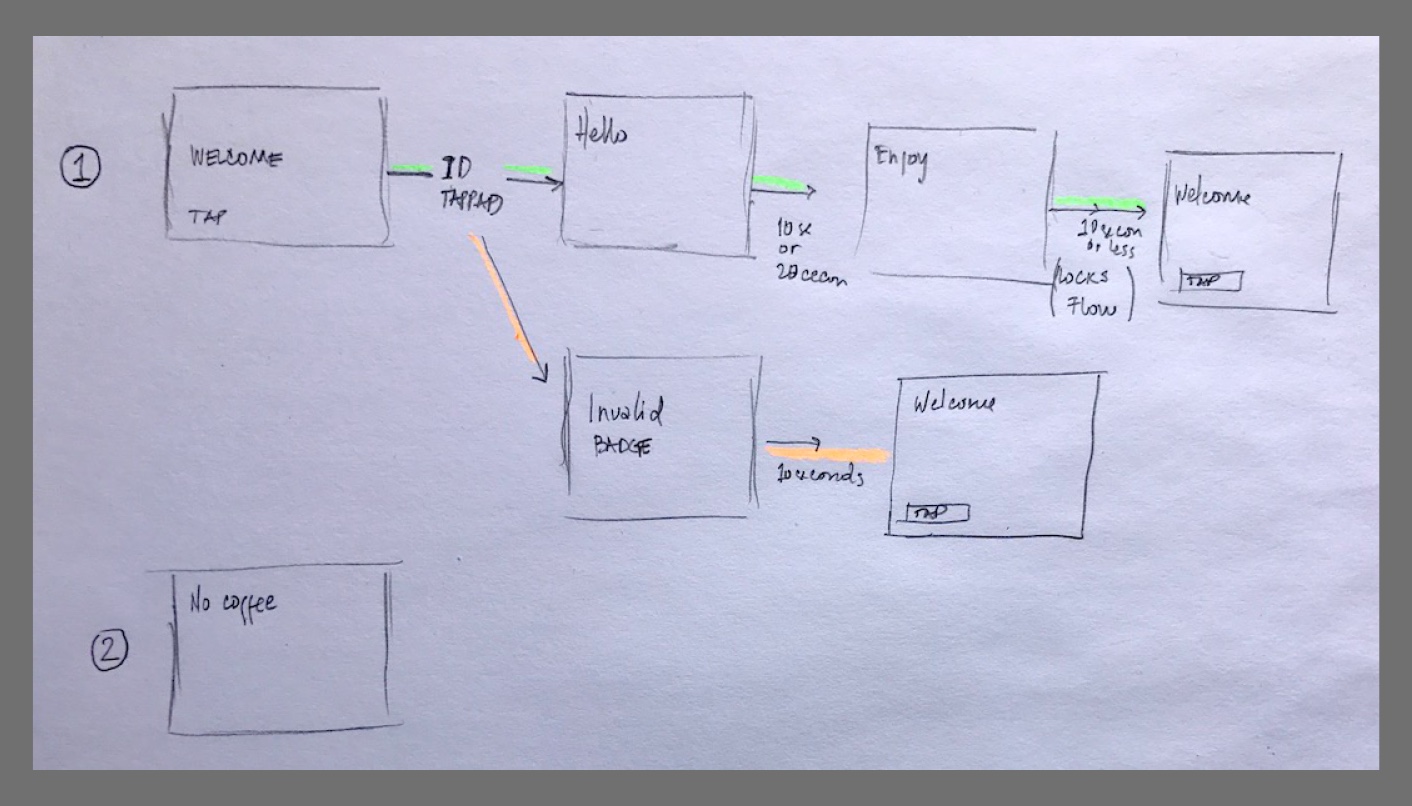 1
WELCOME
TAP
ID
TAPPAD
Hello
10 se
or
20 secon
Enjoy
10 secon
or less
(locks
Flow)
Welcome
TAP
Invalid
BADGE
10 seconds
Welcome
TAP
2
No coffee